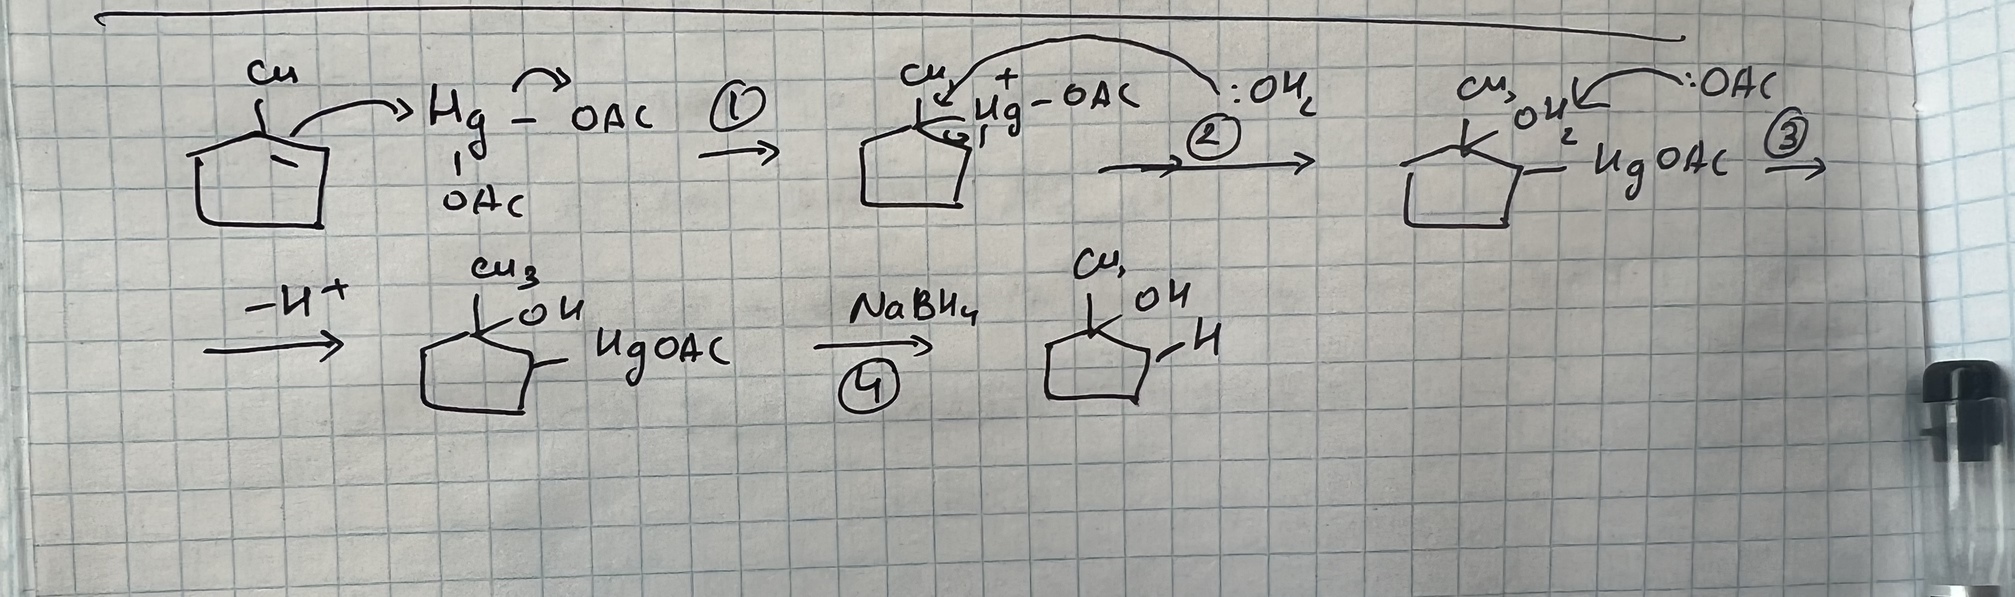 CH Hg - OAC ① CH₃ + Hg - OAC :OH₂ ② CH₃ OH₂ HgOAC :OAC ③
OAC
-H+ CH3 OH HgOAC NaBH4 ④ CH₃ OH H